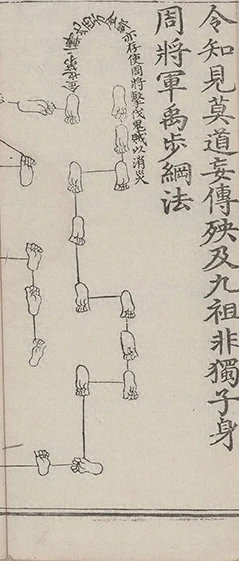 令知見莫道妄傳殃及九祖非獨子身
周將軍禹步綱法
亦存使周將擊伐鬼賊以消災